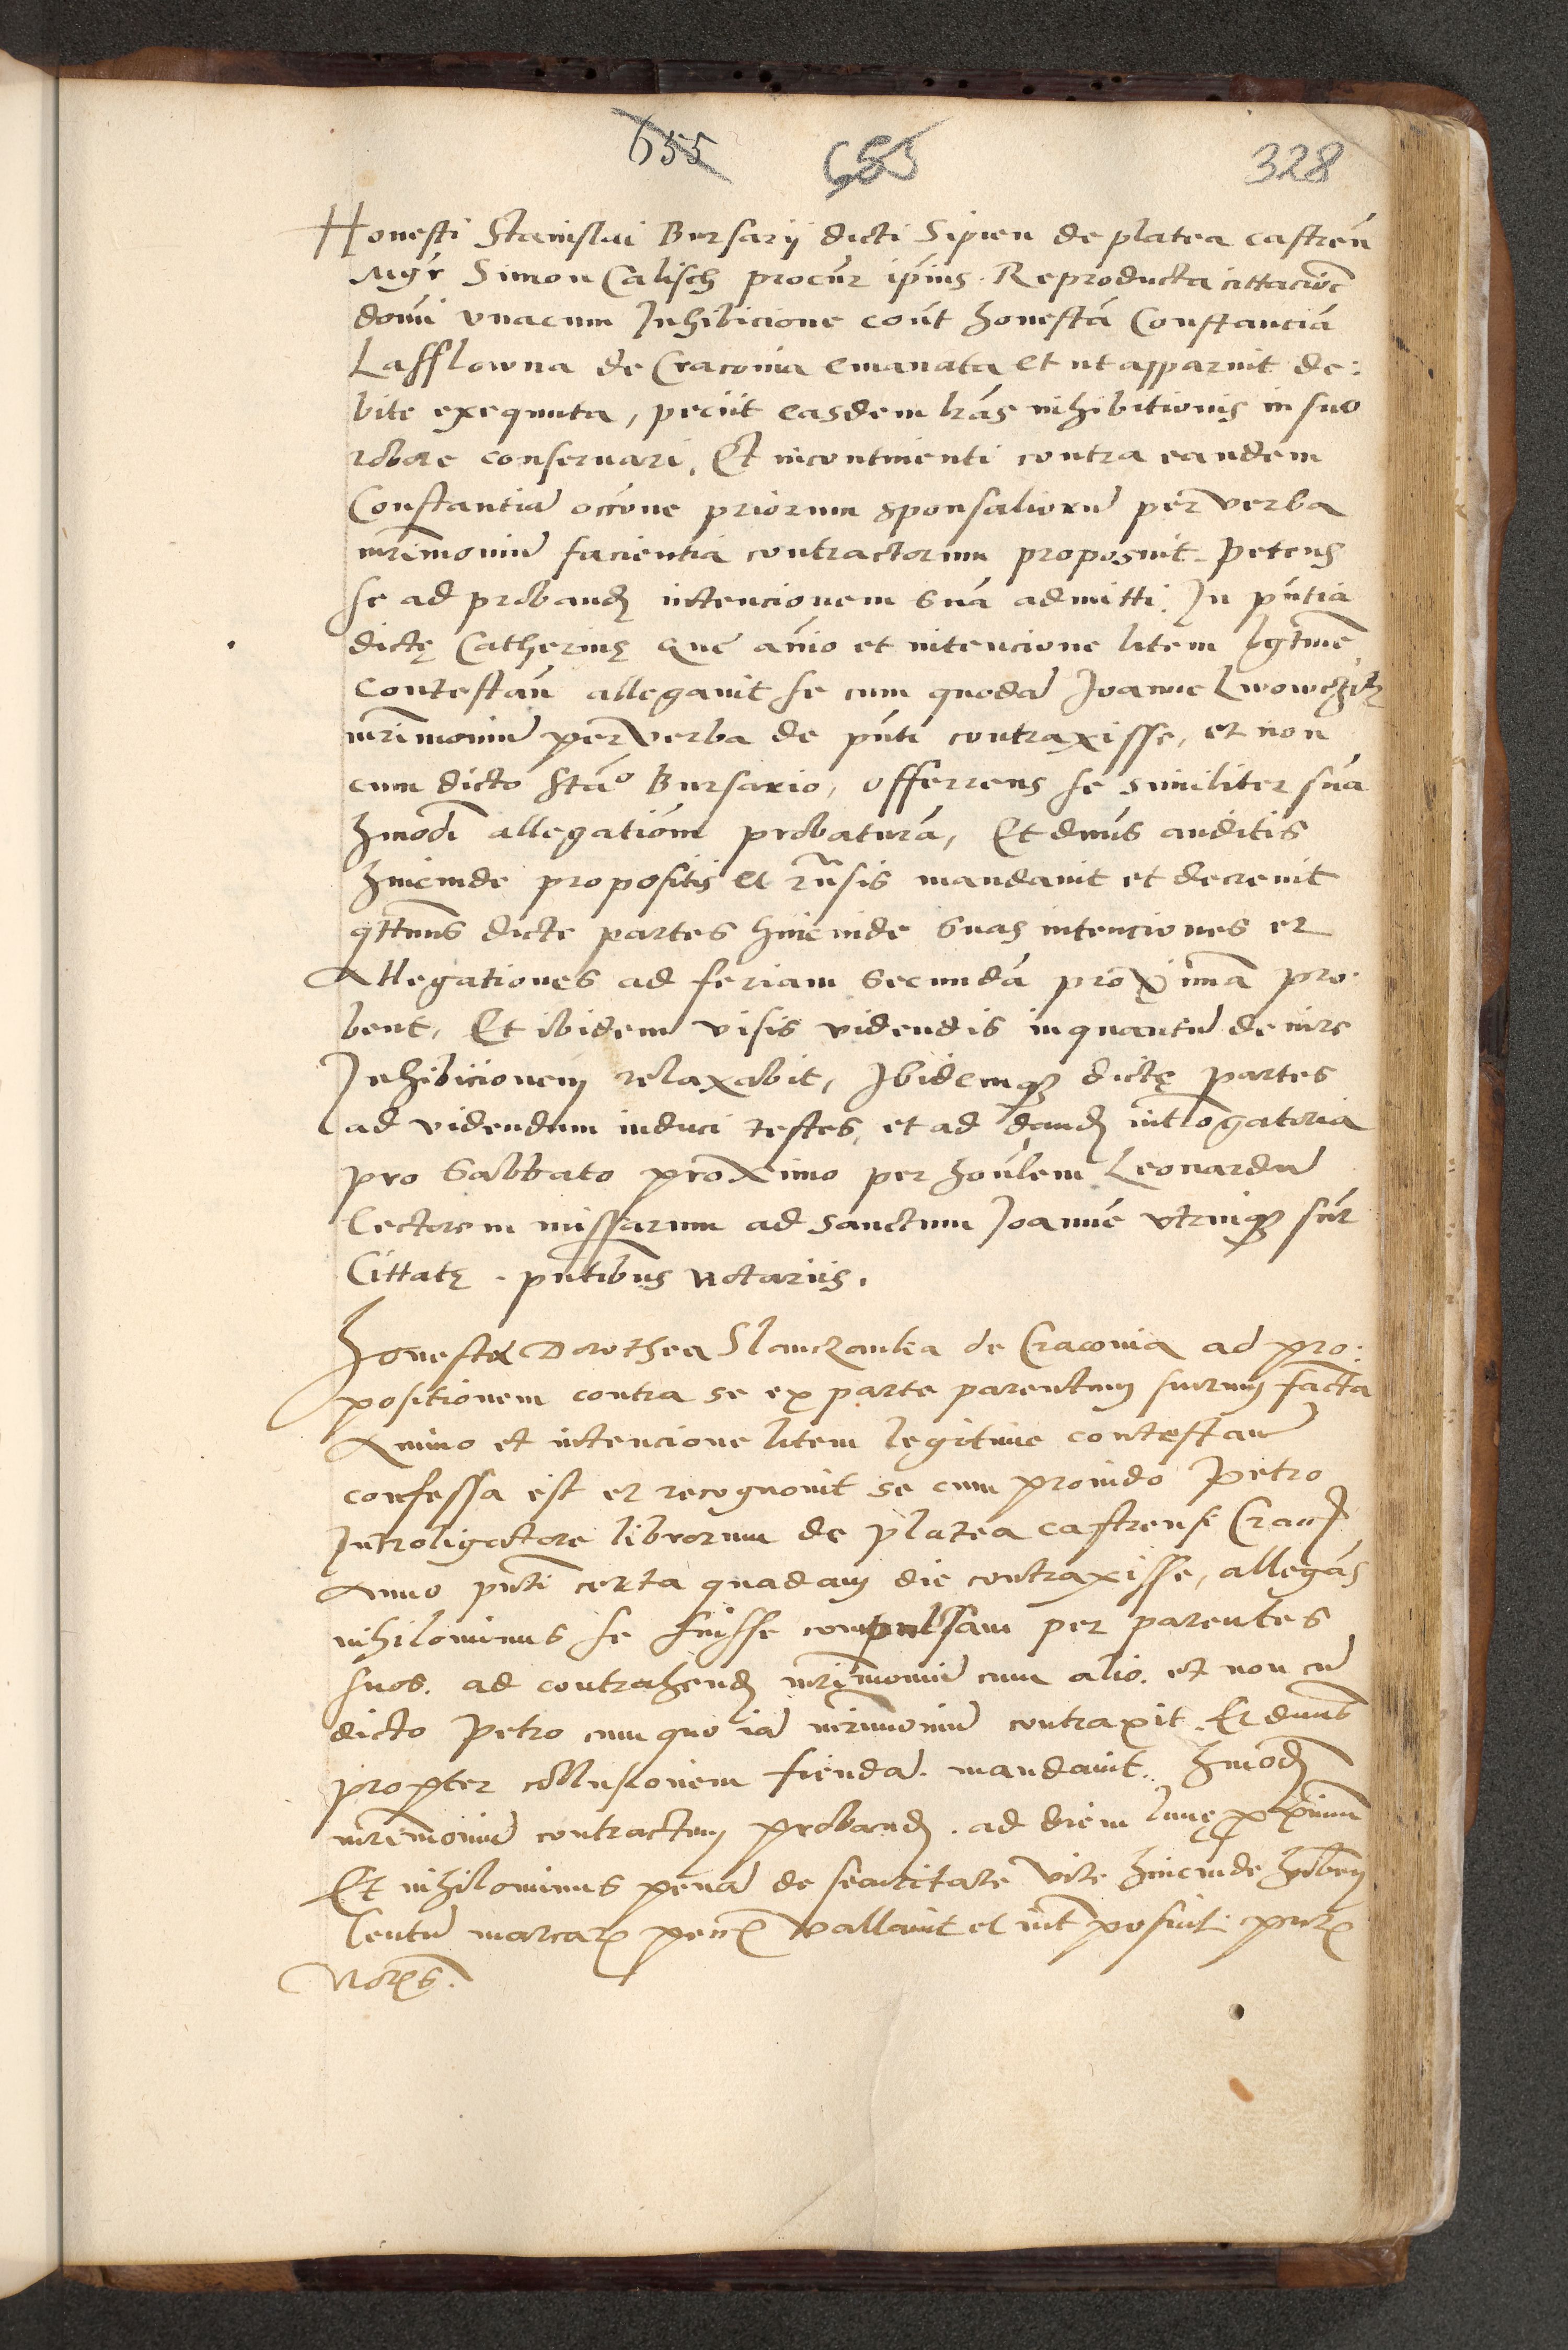 655 655 328
Honesti Stanislai Bursarij dicti Sipien de platea castren̄
Mgr̄ Simon Calisch procur̄ ip̄ius. Reproducta cittacioē
domi vnacum Inhibicione cont̄ honestā Constanciā
Lasslowna de Cracouia emanata et ut apparuit de:
bite exequuta, peciit easdem l̄ras inhibitionis in suo
robore conseruari. Et incontinenti contra eandem
Constantiā occ̄one priorum sponsaliorū per verba
mr̄imoniū facientia contractorum proposuit. Petens
se ad proband intencionem suā admitti. In pn̄tia
dictę Catherinę que aīo et intencione litem lgtīme
contestan̄ allegauit se cum quodā Joanne Lwowczik
mr̄imoniū per verba de pn̄ti contraxisse, et non
cum dicto Stā° Bursario, offerrens se similiter suā
hmōdi allegatiōm probaturā, Et dn̄us auditis
hincinde propositis et rn̄sis mandauit et decreuit
q̄ttenus dicte partes hincinde suas intenciones et
Allegationes ad feriam secundā proximā pro
bent, Et ibidem visis videndis inquantū de iure
Inhibicionem relaxabit, Ibidemq₃ dictę partes
ad videndum induci testes, et ad dand int̄rogatoria
pro Sabbato proximo per hon̄lem Leonardū
lectorem missarum ad sanctum Joannē vtrinq₃ sūt
Cittatę. pn̄tibus Notariis.
Honesta Dorothea Slanczanka de Cracouia ad pro:
positionem contra se ex parte parentum suorum factā
Animo et intencione litem legitime contestan̄
confessa est et recognouit se cum prouido Petro
Introligatore librorum de platea castrensi Crac̄
Anno pn̄ti certa quadam die contraxisse, allegās
nihilominus se fuisse compulsam per parentes
suos. ad contrahend mr̄imoniū cum alio. et non cū
dicto Petro cum quo iā mr̄imoniū contraxit. Et dn̄us
propter collusionem fiendā. mandauit. hmōdi
mr̄imoniū contractum proband. ad diem lunę proximū
Et nihilominus penā de securitate vite hincinde hn̄dem
Centū marcarū pen̄ vallauit et int̄posuit. pn̄t
Notr̄s.